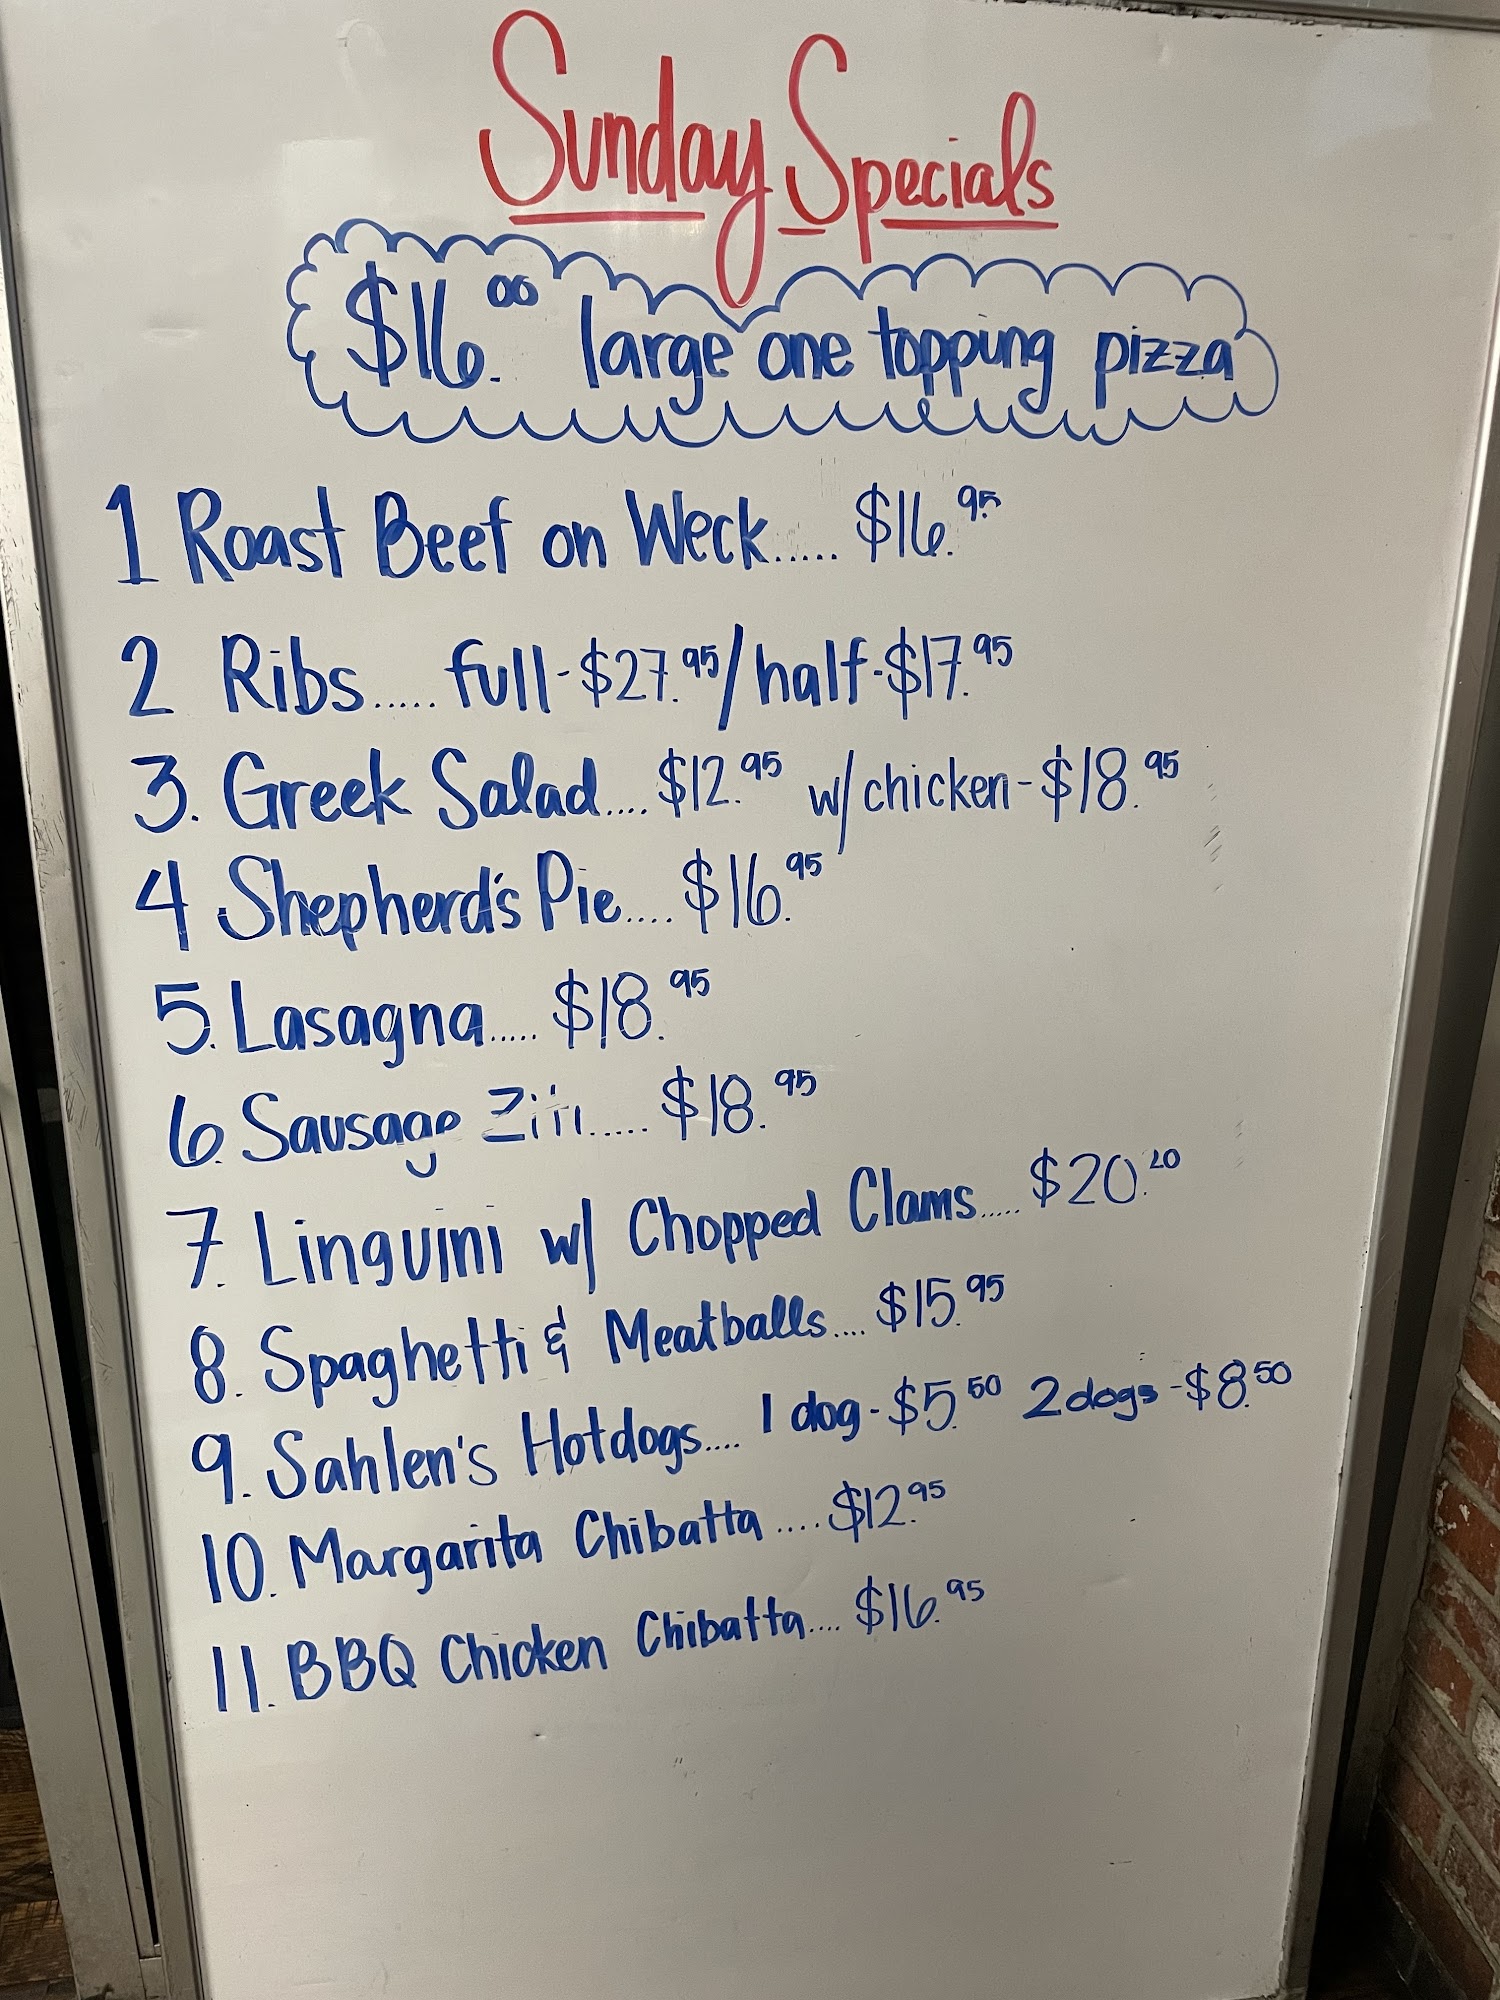 Sunday Specials
$16.00 large one topping pizza
1 Roast Beef on Weck..... $16.95
2 Ribs..... full-$27.95/half-$17.95
3. Greek Salad.... $12.95 w/chicken-$18.95
4 Shepherd's Pie.... $16.95
5. Lasagna..... $18.95
6. Sausage Ziti..... $18.95
7. Linguini w/ Chopped Clams..... $20.20
8. Spaghetti & Meatballs.... $15.95
9. Sahlen's Hotdogs.... 1 dog-$5.50 2 dogs-$8.50
10. Margarita Chibatta .... $12.95
11. BBQ Chicken Chibatta.... $16.95